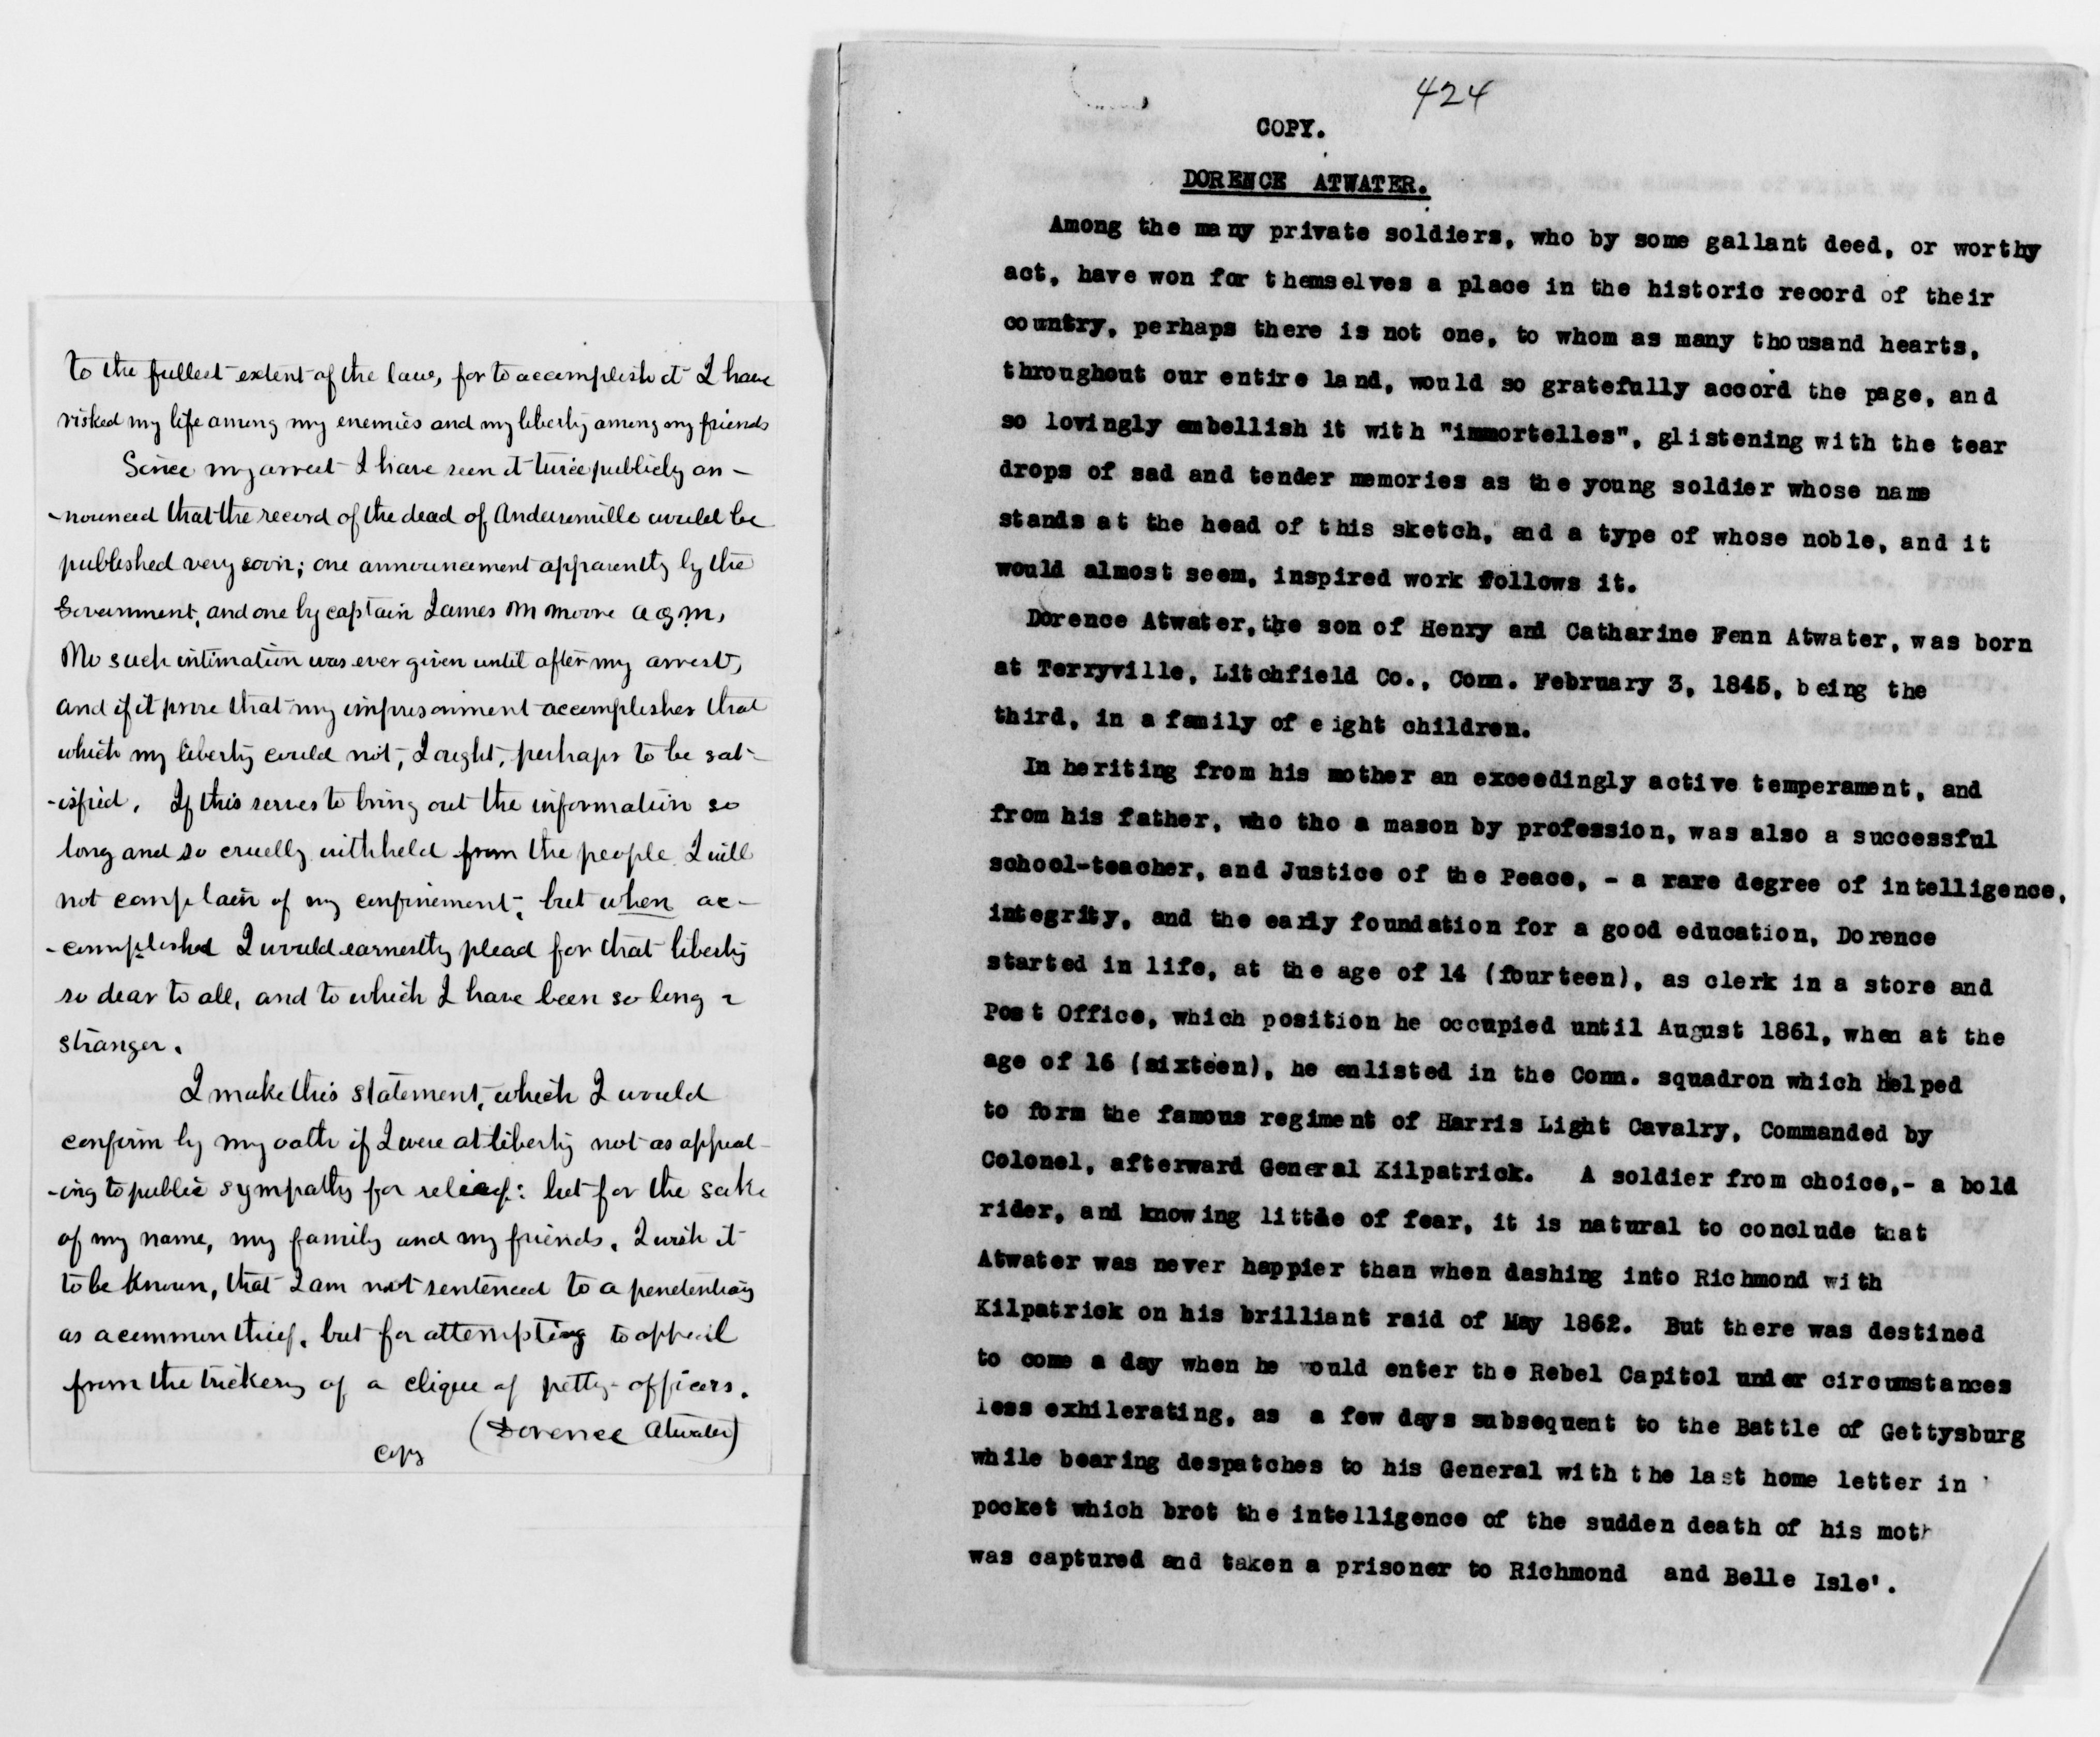 to the fullest extent of the law, for to accomplish it I have
risked my life among my enemies and my liberty among my friends
Since my arrest I have seen it twice publicly an-
-nounced that the record of the dead of Andersonville would be
published very soon; one announcement apparently by the
Government, and one by captain James M Moore a q m,
No such intimation was ever given until after my arrest,
and if it prove that my imprisonment accomplishes that
which my liberty could not, I ought, perhaps to be sat-
-isfied. If this serves to bring out the information so
long and so cruelly withheld from the people I will
not complain of my confinement; but when ac-
-complished I would earnestly plead for that liberty
so dear to all, and to which I have been so long a
stranger.
I make this statement, which I would
confirm by my oath if I were at liberty not as appeal-
-ing to public sympathy for relief: but for the sake
of my name, my family and my friends. I wish it
to be known, that I am not sentenced to a penetentiary
as a common thief, but for attempting to appeal
from the trickery of a clique of petty-officers.
(Dorence Atwater)
Copy
424
COPY.
DORENCE ATWATER.
Among the many private soldiers, who by some gallant deed, or worthy
act, have won for themselves a place in the historic record of their
country, perhaps there is not one, to whom as many thousand hearts,
throughout our entire land, would so gratefully accord the page, and
so lovingly embellish it with "immortelles", glistening with the tear
drops of sad and tender memories as the young soldier whose name
stands at the head of this sketch, and a type of whose noble, and it
would almost seem, inspired work follows it.
Dorence Atwater, the son of Henry and Catharine Fenn Atwater, was born
at Terryville, Litchfield Co., Conn. February 3, 1845, being the
third, in a family of eight children.
In heriting from his mother an exceedingly active temperament, and
from his father, who tho a mason by profession, was also a successful
school-teacher, and Justice of the Peace, - a rare degree of intelligence,
integrity, and the early foundation for a good education, Dorence
started in life, at the age of 14 (fourteen), as clerk in a store and
Post Office, which position he occupied until August 1861, when at the
age of 16 (sixteen), he enlisted in the Conn. squadron which helped
to form the famous regiment of Harris Light Cavalry, Commanded by
Colonel, afterward General Kilpatrick. A soldier from choice,- a bold
rider, and knowing little of fear, it is natural to conclude that
Atwater was never happier than when dashing into Richmond with
Kilpatrick on his brilliant raid of May 1862. But there was destined
to come a day when he would enter the Rebel Capitol under circumstances
less exhilerating, as a few days subsequent to the Battle of Gettysburg
while bearing despatches to his General with the last home letter in
pocket which brot the intelligence of the sudden death of his moth
was captured and taken a prisoner to Richmond and Belle Isle'.